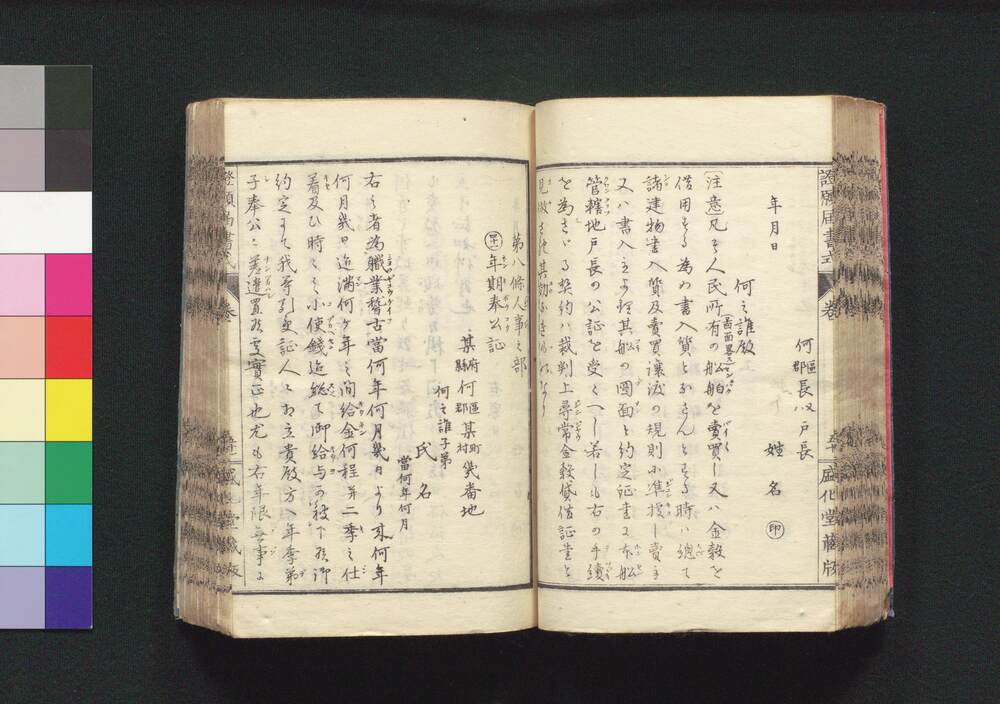 何區郡長又ハ戸長
姓名 印
年月日
何之誰殿
(注意)凡ソ人民所有の船舶を賣買し又ハ金穀を
借用する為め書入質となさんとする時ハ總て
諸建物書入質及賣買讓渡の規則に準據し賣主
又ハ書入主より其船の圖面と約定証書に本船
管轄地戸長の公証を受くへし若しも右の手續
を為さゝる契約ハ裁判上尋常金穀貸借証書と
第八條人事之部
年期奉公証
某府縣何區郡某町村幾番地
何之誰子弟
氏名
當何年何月
右之者為職業稽古當何年何月幾日より来何年
何月幾日迄満何ヶ年之間給金何程并二季之仕
着及ひ時々之小使錢迄総て御給与可被下筈御
約定にて我等引受証人に相立貴殿方へ年季弟
子奉公ニ差遣置候處實正也尤も右年限無事に
證願届書式
卷
盛化堂藏版